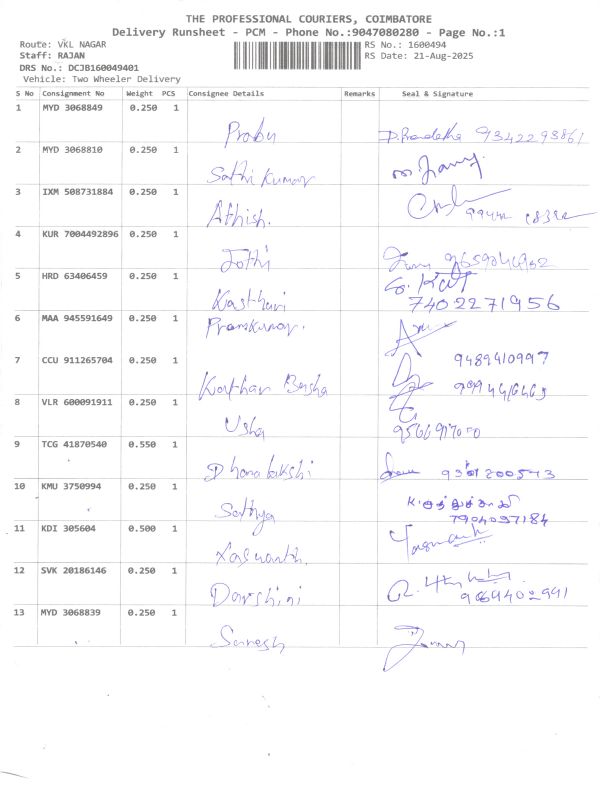 THE PROFESSIONAL COURIERS, COIMBATORE
Delivery Runsheet - PCM - Phone No.:9047080280 - Page No.:1
Route: VKL NAGAR RS No.: 1600494
Staff: RAJAN RS Date: 21-Aug-2025
DRS No.: DCJB160049401
Vehicle: Two Wheeler Delivery
S No Consignment No Weight PCS Consignee Details Remarks Seal & Signature
1 MYD 3068849 0.250 1
Prabu 9342293861
2 MYD 3068810 0.250 1
Sathi Kumar
3 IXM 508731884 0.250 1
Athish.
4 KUR 7004492896 0.250 1
Jothi
5 HRD 63406459 0.250 1
Kasthuri 7402271956
6 MAA 945591649 0.250 1
Premkumar.
7 CCU 911265704 0.250 1 9489410997
8 VLR 600091911 0.250 1
Usha
9 TCG 41870540 0.550 1
Dhanalakshi
10 KMU 3750994 0.250 1
Sathya 7904097184
11 KDI 305604 0.500 1
12 SVK 20186146 0.250 1
Darshini
13 MYD 3068839 0.250 1
Suresh